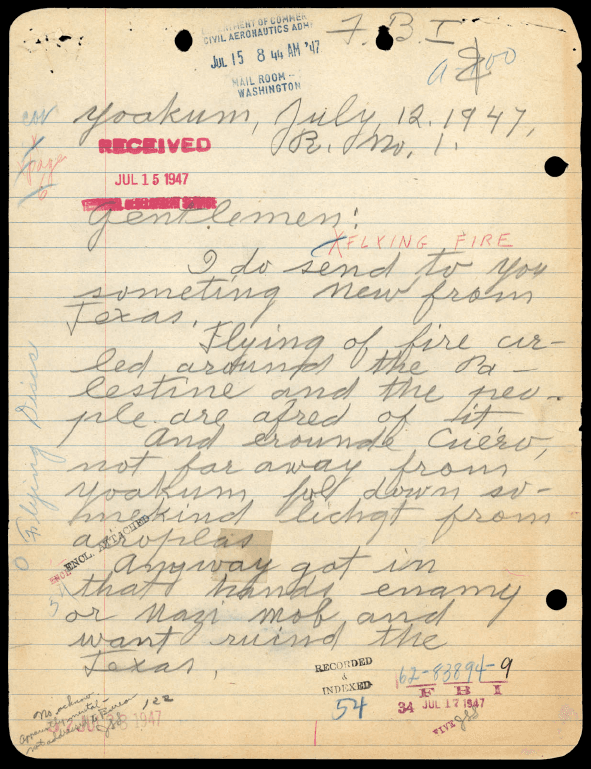 DEPARTMENT OF COMMERCE
CIVIL AERONAUTICS ADM
JUL 15 8 44 AM '47
MAIL ROOM
WASHINGTON
F. B. I
Yoakum, July, 12. 1947,
R. No, 1.
RECEIVED
JUL 15 1947
Gentlemen:
FLYING FIRE
I do send to you
someting new from
Texas.
Flying of fire cir-
led around the Pa-
lestine and the peo-
ple are afred of it
And erounde Cuero,
not far away from
Yoakum fol down so-
mekind lichgt from
aeroplas
Anyway got in
that hands enemy
or Nazi mob and
want ruind the
Texas,
Flying Discs
ENCL. ATTACHED
RECORDED
&
INDEXED
54
62-83894-9
F B I
34 JUL 17 1947
FIVE
No acknow.
122
1947